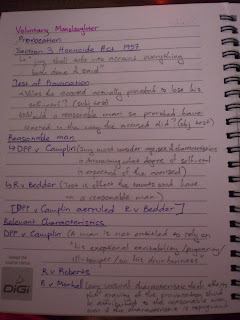 Voluntary Manslaughter
Provocation
Section 3 Homicide Act 1957
↳ "jury shall take into account everything
both done & said"
Test of Provocation
→ Was the accused actually provoked to lose his
self-control? (subj test)
→ Would a reasonable man so provoked have
reacted in the way the accused did? (obj test)
Reasonable man
↳ DPP v Camplin (Jury must consider age, sex & characteristics
in determining what degree of self-control
is expected of the accused)
↳ R v Bedder (Test is effect the taunts would have
on a reasonable man)
[DPP v Camplin overruled R v Bedder]
Relevant Characteristics
DPP v Camplin (A man is not entitled to rely on
"his exceptional excitability/pugnacity/
ill-temper/on his drunkenness"
R v Roberts
R v Morhall (any unusual characteristic that affects
the gravity of the provocation should
be attributed to the reasonable man,
even if the characteristic is
DiGi